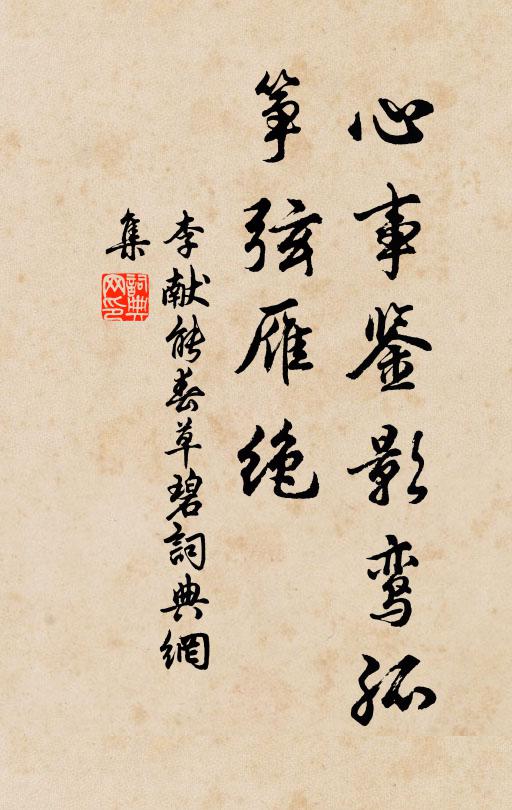 心事鉴影鸾孤
筝弦雁绝
李献能春草碧詞典網
集
詞典
网印